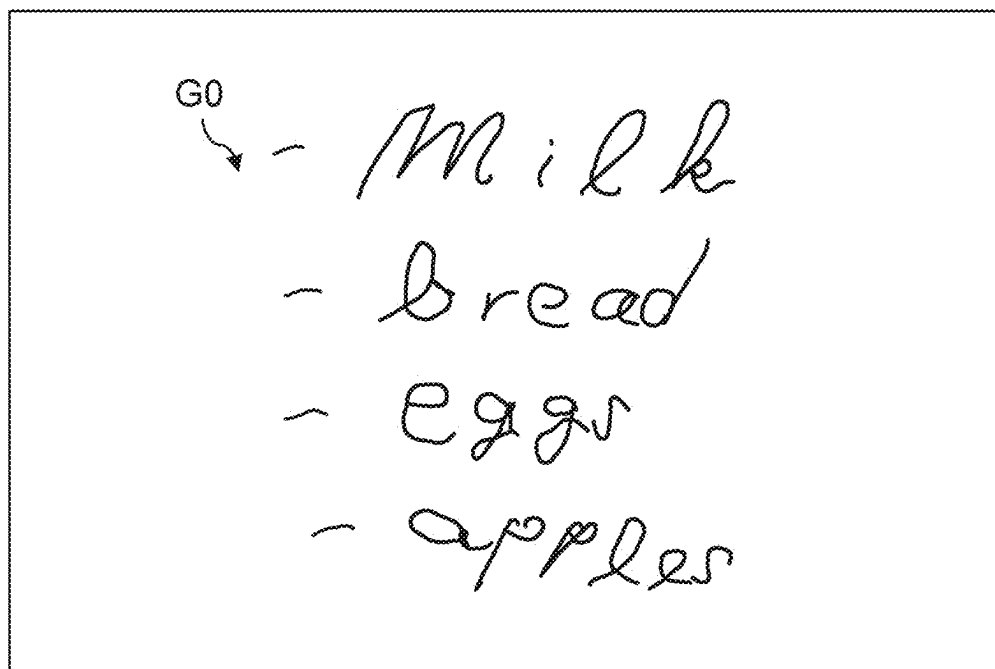 G0
- Milk
- bread
- eggs
- apples